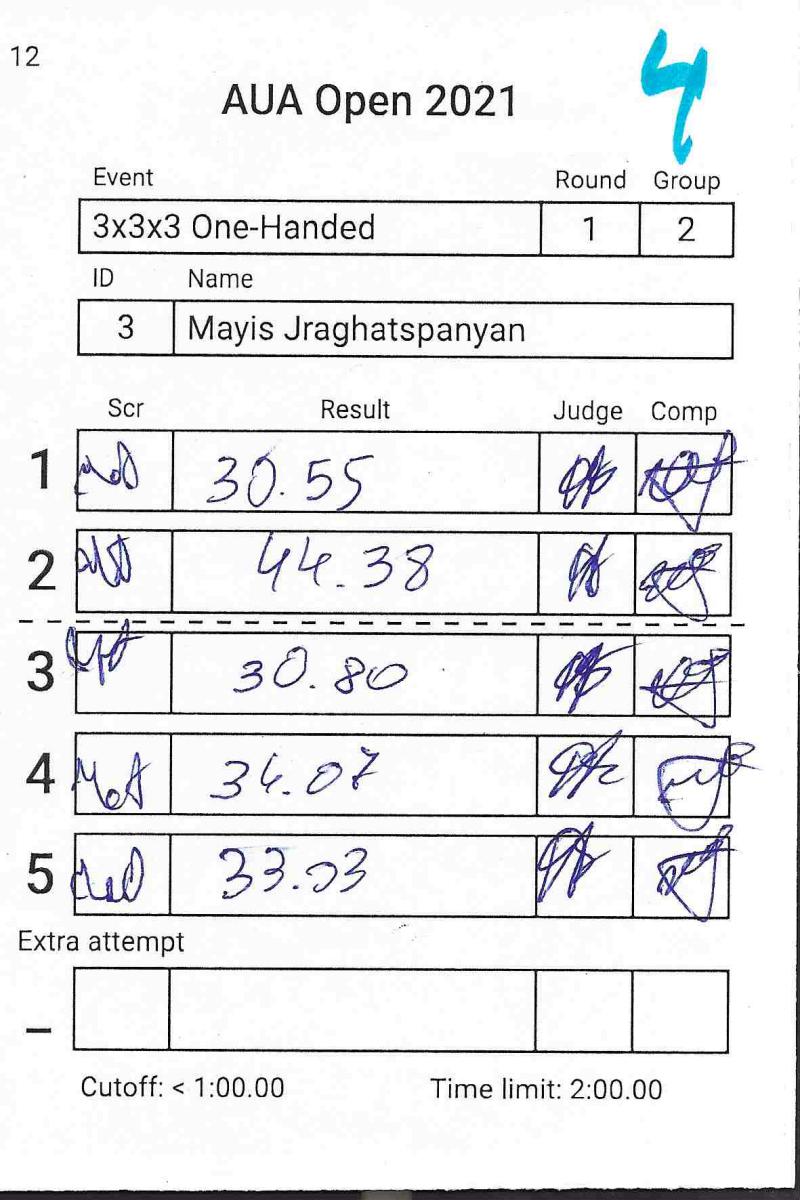 12
4
AUA Open 2021
Event Round Group
3x3x3 One-Handed 1 2
ID Name
3 Mayis Jraghatspanyan
Scr Result Judge Comp
1 30.55
2 44.38
3 30.80
4 34.07
5 33.03
Extra attempt
_
Cutoff: < 1:00.00 Time limit: 2:00.00